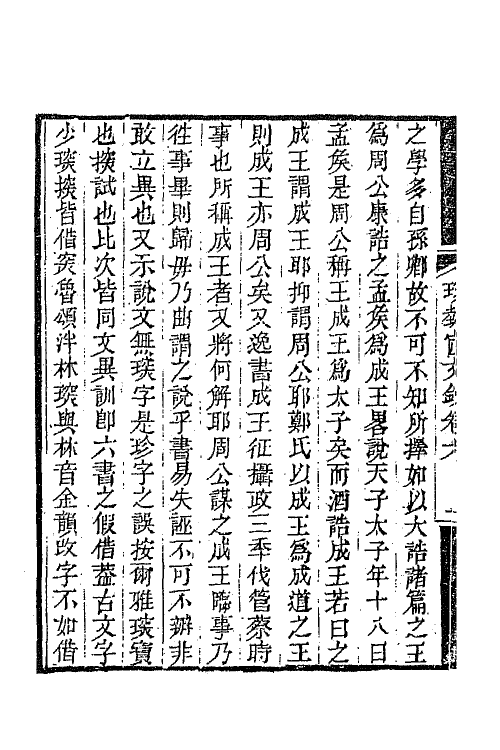 之學多自孫卿故不可不知所擇如以大誥諸篇之王
為周公康誥之孟矦為成王畧說天子太子年十八曰
孟矦是周公稱王成王為太子矣而酒誥成王若曰之
成王謂成王耶抑謂周公耶鄭氏以成王為成道之王
則成王亦周公矣又逸書成王征攝政三年伐管蔡時
事也所稱成王者又將何解耶周公謀之成王臨事乃
徃事畢則歸毋乃曲謂之說乎書易失誣不可不辨非
敢立異也又示說文無琰字是珍字之誤按爾雅琰寶
也探試也比次皆同文異訓卽六書之假借葢古文字
少琰探皆借罙魯頌泮林琛與林音金韻改字不如借
珍埶宧文鈔卷六